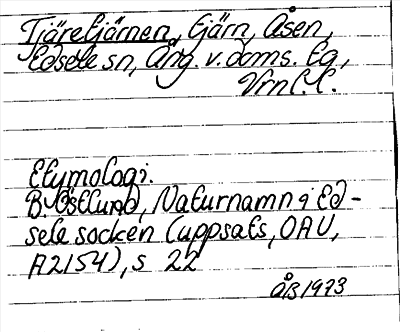 Tjäretjärnen, tjärn, Åsen,
Edsele sn, Ång. v. doms. tg,
Vrnl. l.
Etymologi.
B. Östlund, Naturnamn i Ed-
sele socken (uppsats, OAU,
A2154), s 22
ÅB 1973